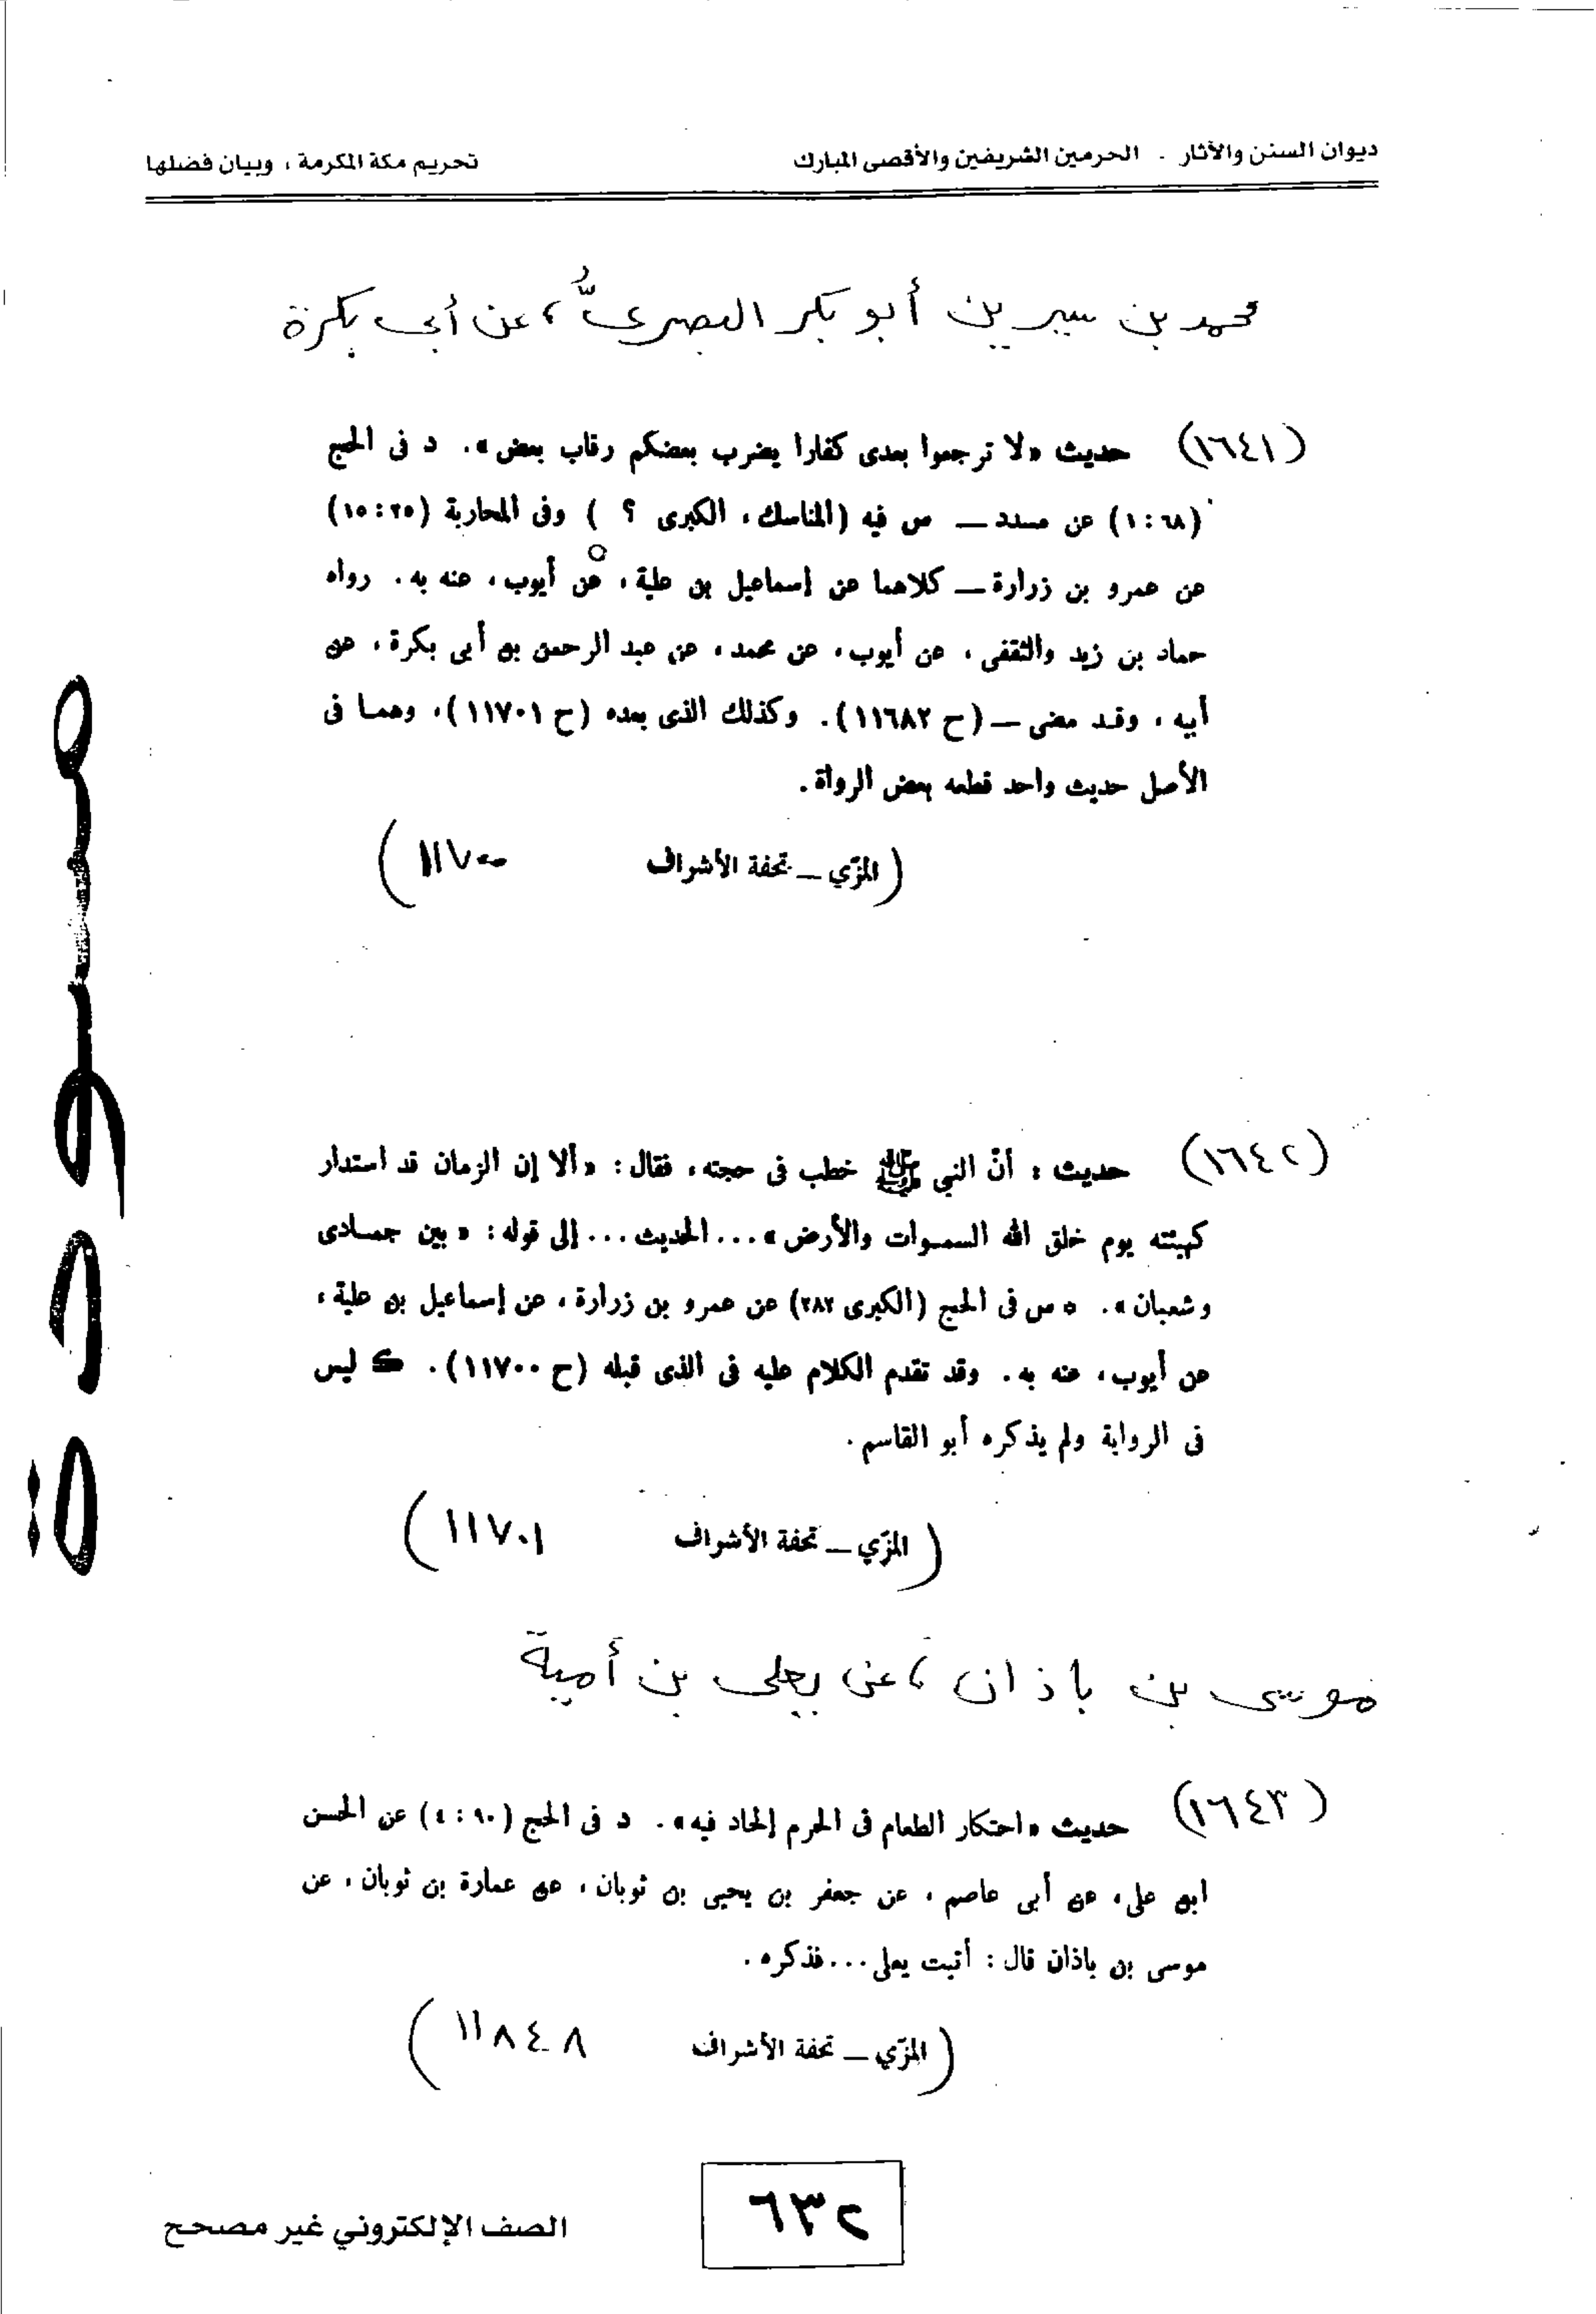 ديوان السنن والآثار - الحرمين الشريفين والأقصى المبارك
تحريم مكة المكرمة ، وبيان فضلها
محمد بن سيرين أبو بكر البصريُّ ، عن أبي بكرة
(١٦٤١) حديث «لا ترجعوا بعدى كفارا يضرب بعضكم رقاب بعض». د فى الحج
(١:٦٨) عن مسدد ــ س فيه (المناسك، الكبرى ؟ ) وفى المحاربة (١٥:٢٥)
عن عمرو بن زرارة ــ كلاهما عن إسماعيل بن علية، عن أيوب، عنه به. رواه
حماد بن زيد والثقفى، عن أيوب، عن محمد، عن عبد الرحمن بن أبى بكرة، عن
أبيه، وقد مضى ــ (ح ١١٦٨٢). وكذلك الذى بعده (ح ١١٧٠١)، وهما فى
الأصل حديث واحد قطعه بعض الرواة.
(المزّي ــ تحفة الأشراف ١١٧٠٠)
(١٦٤٢) حديث : أنّ النبي ﷺ خطب فى حجته، فقال: «ألا إن الزمان قد استدار
كهيئته يوم خلق الله السموات والأرض»...الحديث...إلى قوله: «بين جمادى
وشعبان». ٥ س فى الحج (الكبرى ٢٨٢) عن عمرو بن زرارة، عن إسماعيل بن علية،
عن أيوب، عنه به. وقد تقدم الكلام عليه فى الذى قبله (ح ١١٧٠٠). ك ليس
فى الرواية ولم يذكره أبو القاسم.
(المزّي ــ تحفة الأشراف ١١٧٠١)
موسى بن باذان ، عن يعلى بن أمية
(١٦٤٣) حديث «احتكار الطعام فى الحرم إلحاد فيه». د فى الحج (٩٠ : ٤) عن الحسن
ابن على، عن أبى عاصم، عن جعفر بن يحيى بن ثوبان، عن عمارة بن ثوبان، عن
موسى بن باذان قال : أتيت يعلى...فذكره.
(المزّي ــ تحفة الأشراف ١١٨٤٨)
٦٣٢
الصف الإلكتروني غير مصحح
مسودة